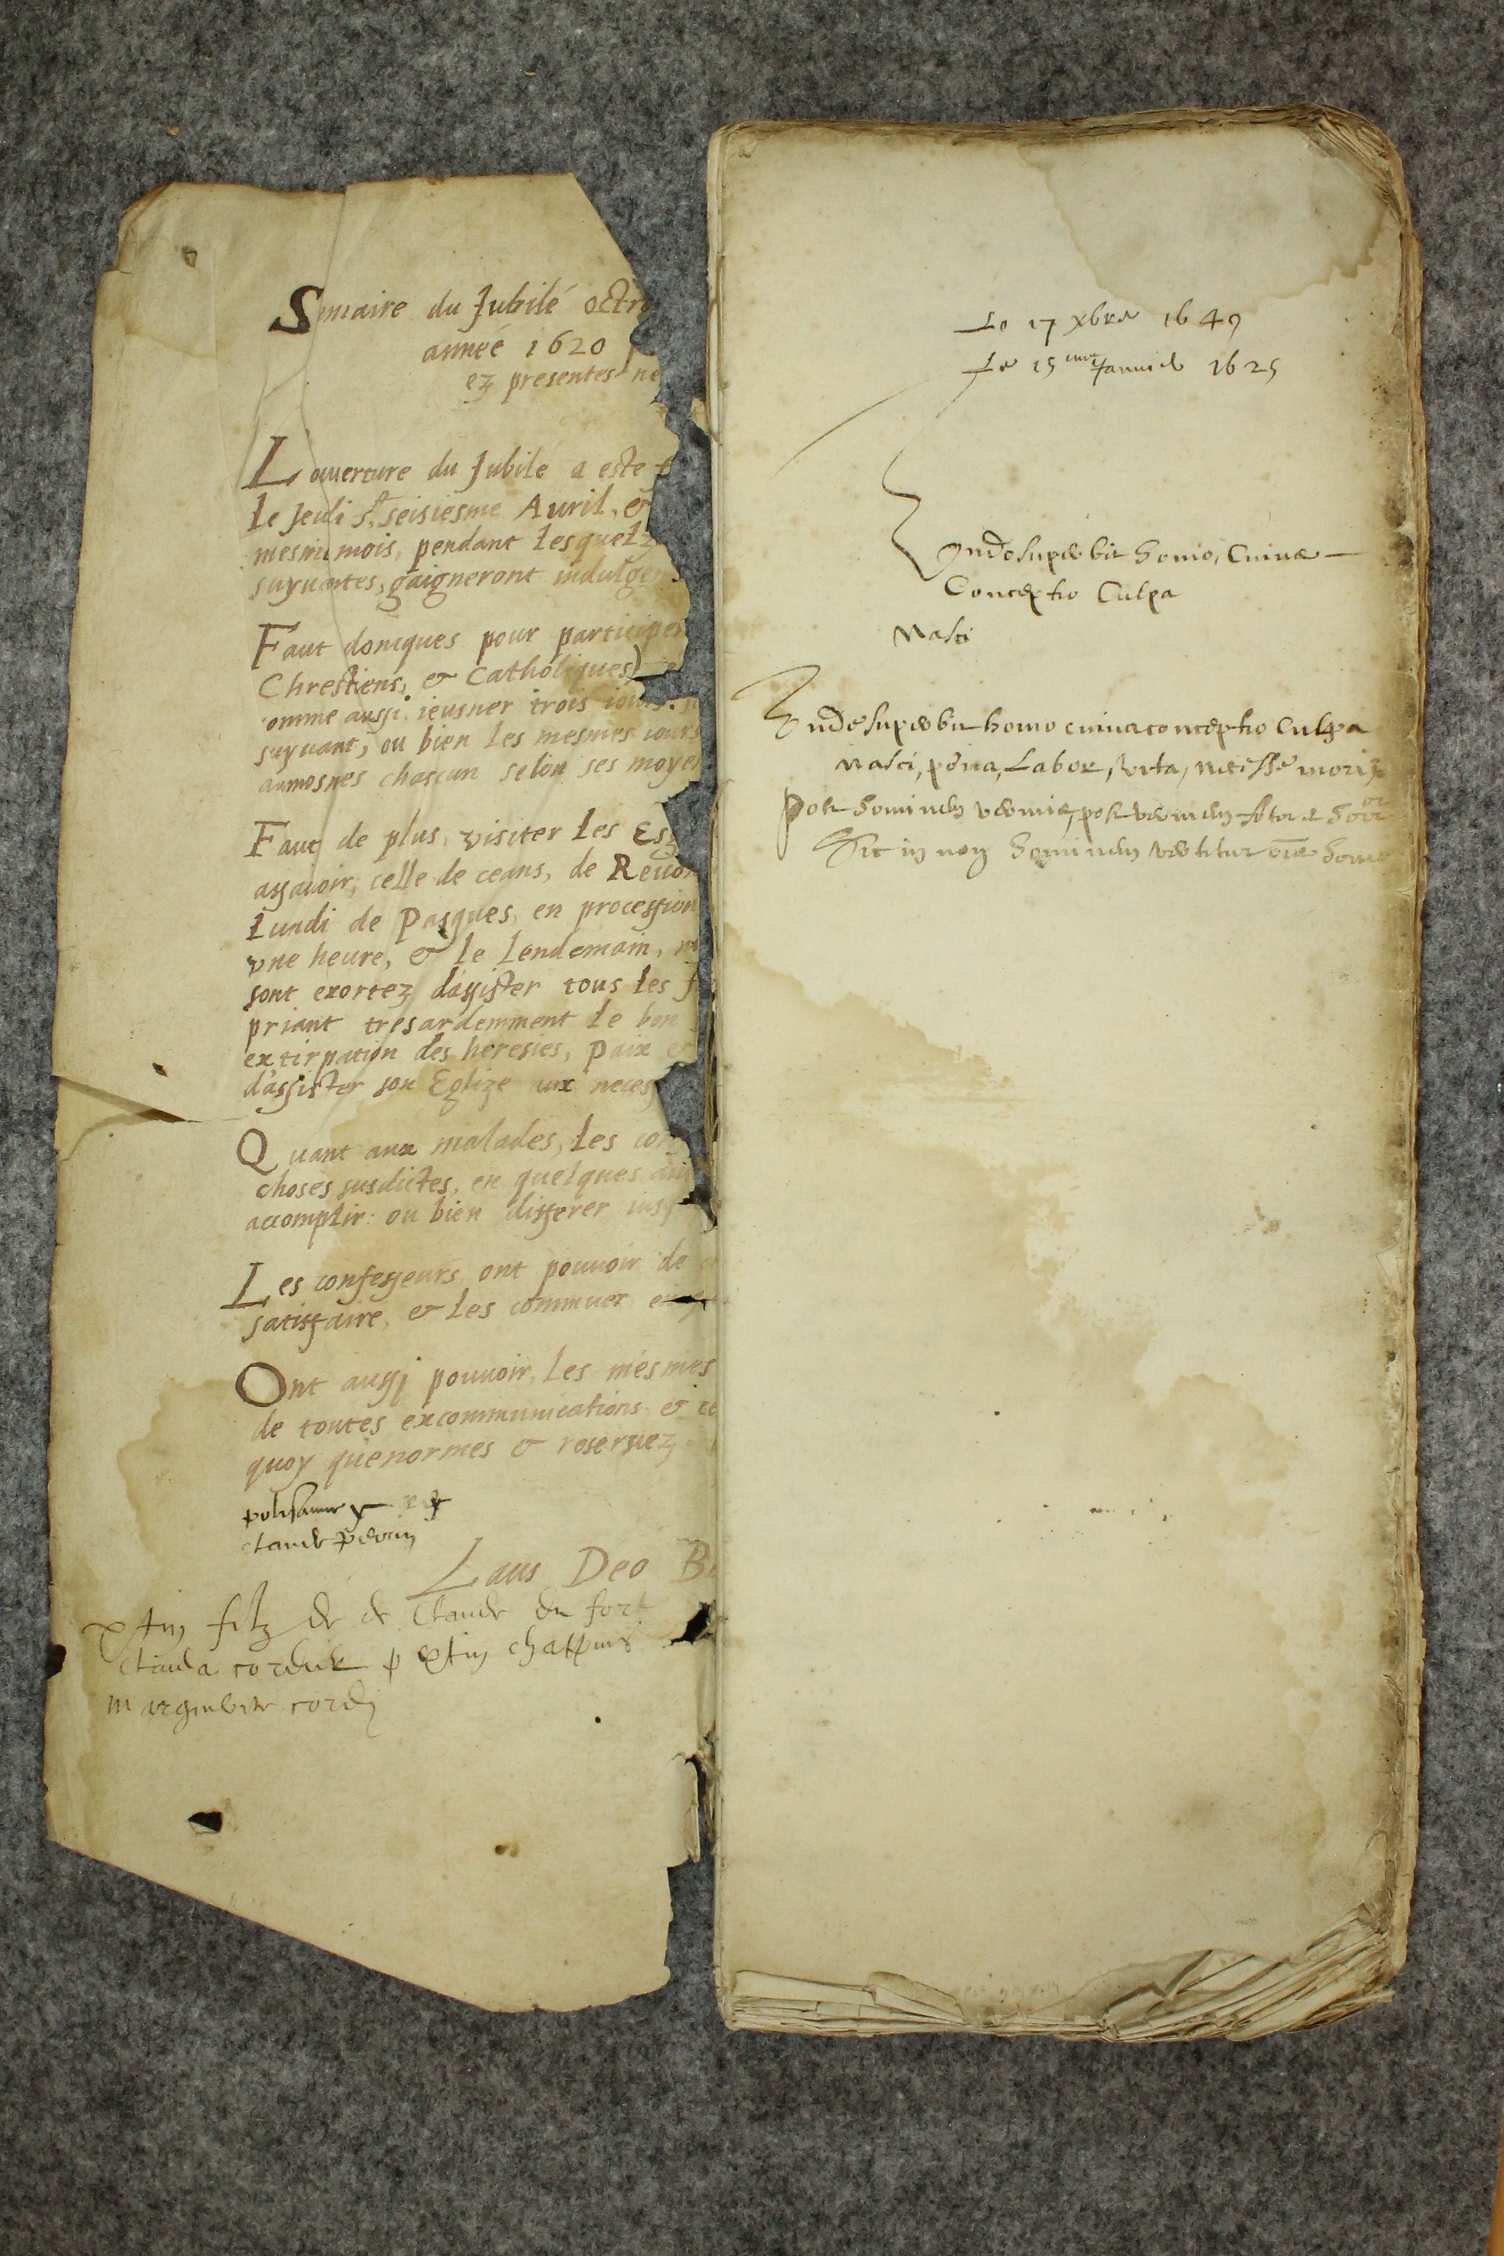 Somaire du Jubilé octr
année 1620
ez presentes ne
Louverture du Jubile a este
le Jeudi st. seisiesme Auril, &
mesme mois, pendant lesquelz
suyuantes, gaigneront indulgen
Faut doncques pour participer
Chrestiens, & Catholiques)
omme aussi ieusner trois iours
suyuant, ou bien les mesmes iours
aumosnes chascun selon ses moyen
Faut de plus, visiter les Esg
assauoir, celle de ceans, de Reuon
Lundi de Pasques, en procession
vne heure, & le lendemain,
sont exortez d'assister tous les f
priant tresardemment le bon
extirpation des heresies, Paix e
d'assister son Eglize aux neces
Quant aux malades, les con
choses susdictes, en quelques au
accomplir: ou bien differer iusq
Les confesseurs ont pouuoir de
satisfaire, & les commuer en
Ont aussj pouuoir, les mesmes
de toutes excommunications &
quoy qu'enormes & reseruez
claude
Laus Deo B
filz de de Claude du fort
Clauda cordier p chappuis
margueritte cordi
Le 17 xbre 1649
Le 15 ime Januier 1625
Unde superbit homo, Cuius
Conceptio Culpa
Nasci
Unde superbit homo cuius conceptio Culpa
Nasci, pena, Labor, vita, necesse mori
Post hominem vermis, post vermem fetor &
Sic in non hominem vertitur omis homo